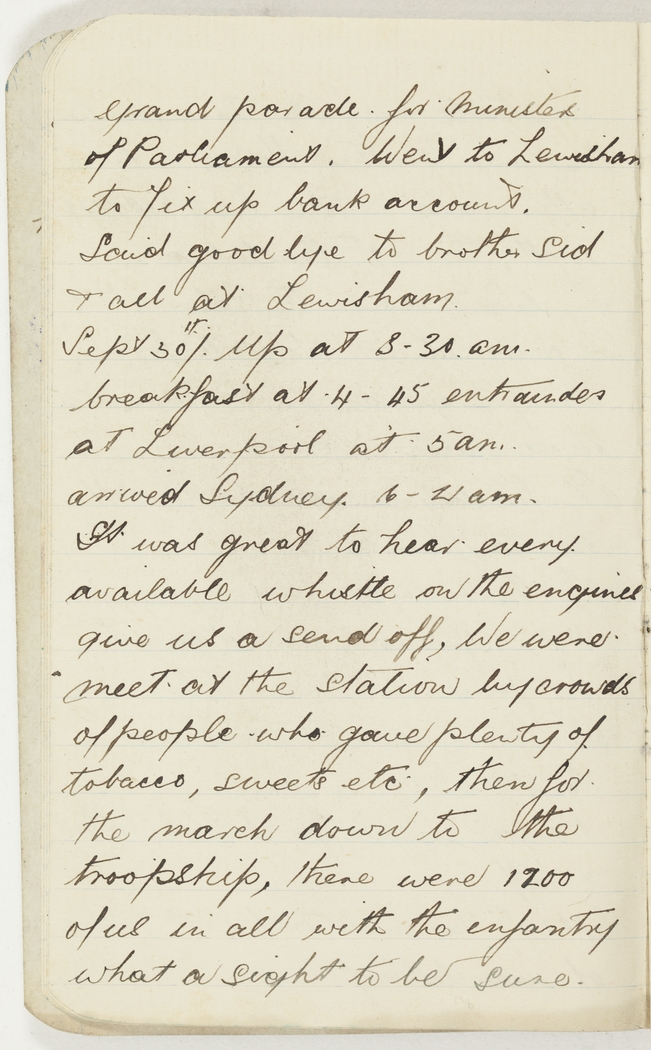 grand parade. for Minister
of Parliament. Went to Lewisham
to fix up bank account.
Said good bye to brother Sid
& all at Lewisham.
Sept 30th. Up at 3-30. am.
breakfast at 4-45 entraindes
at Liverpool at 5 am.
arrived Sydney. 6-21 am.
It was great to hear every.
available whistle on the engines
give us a send off, We were
meet at the station by crowds
of people who gave plenty of
tobacco, sweets etc, then for
the march down to the
troopship, there were 1200
of us in all with the enfantry
what a sight to be sure.